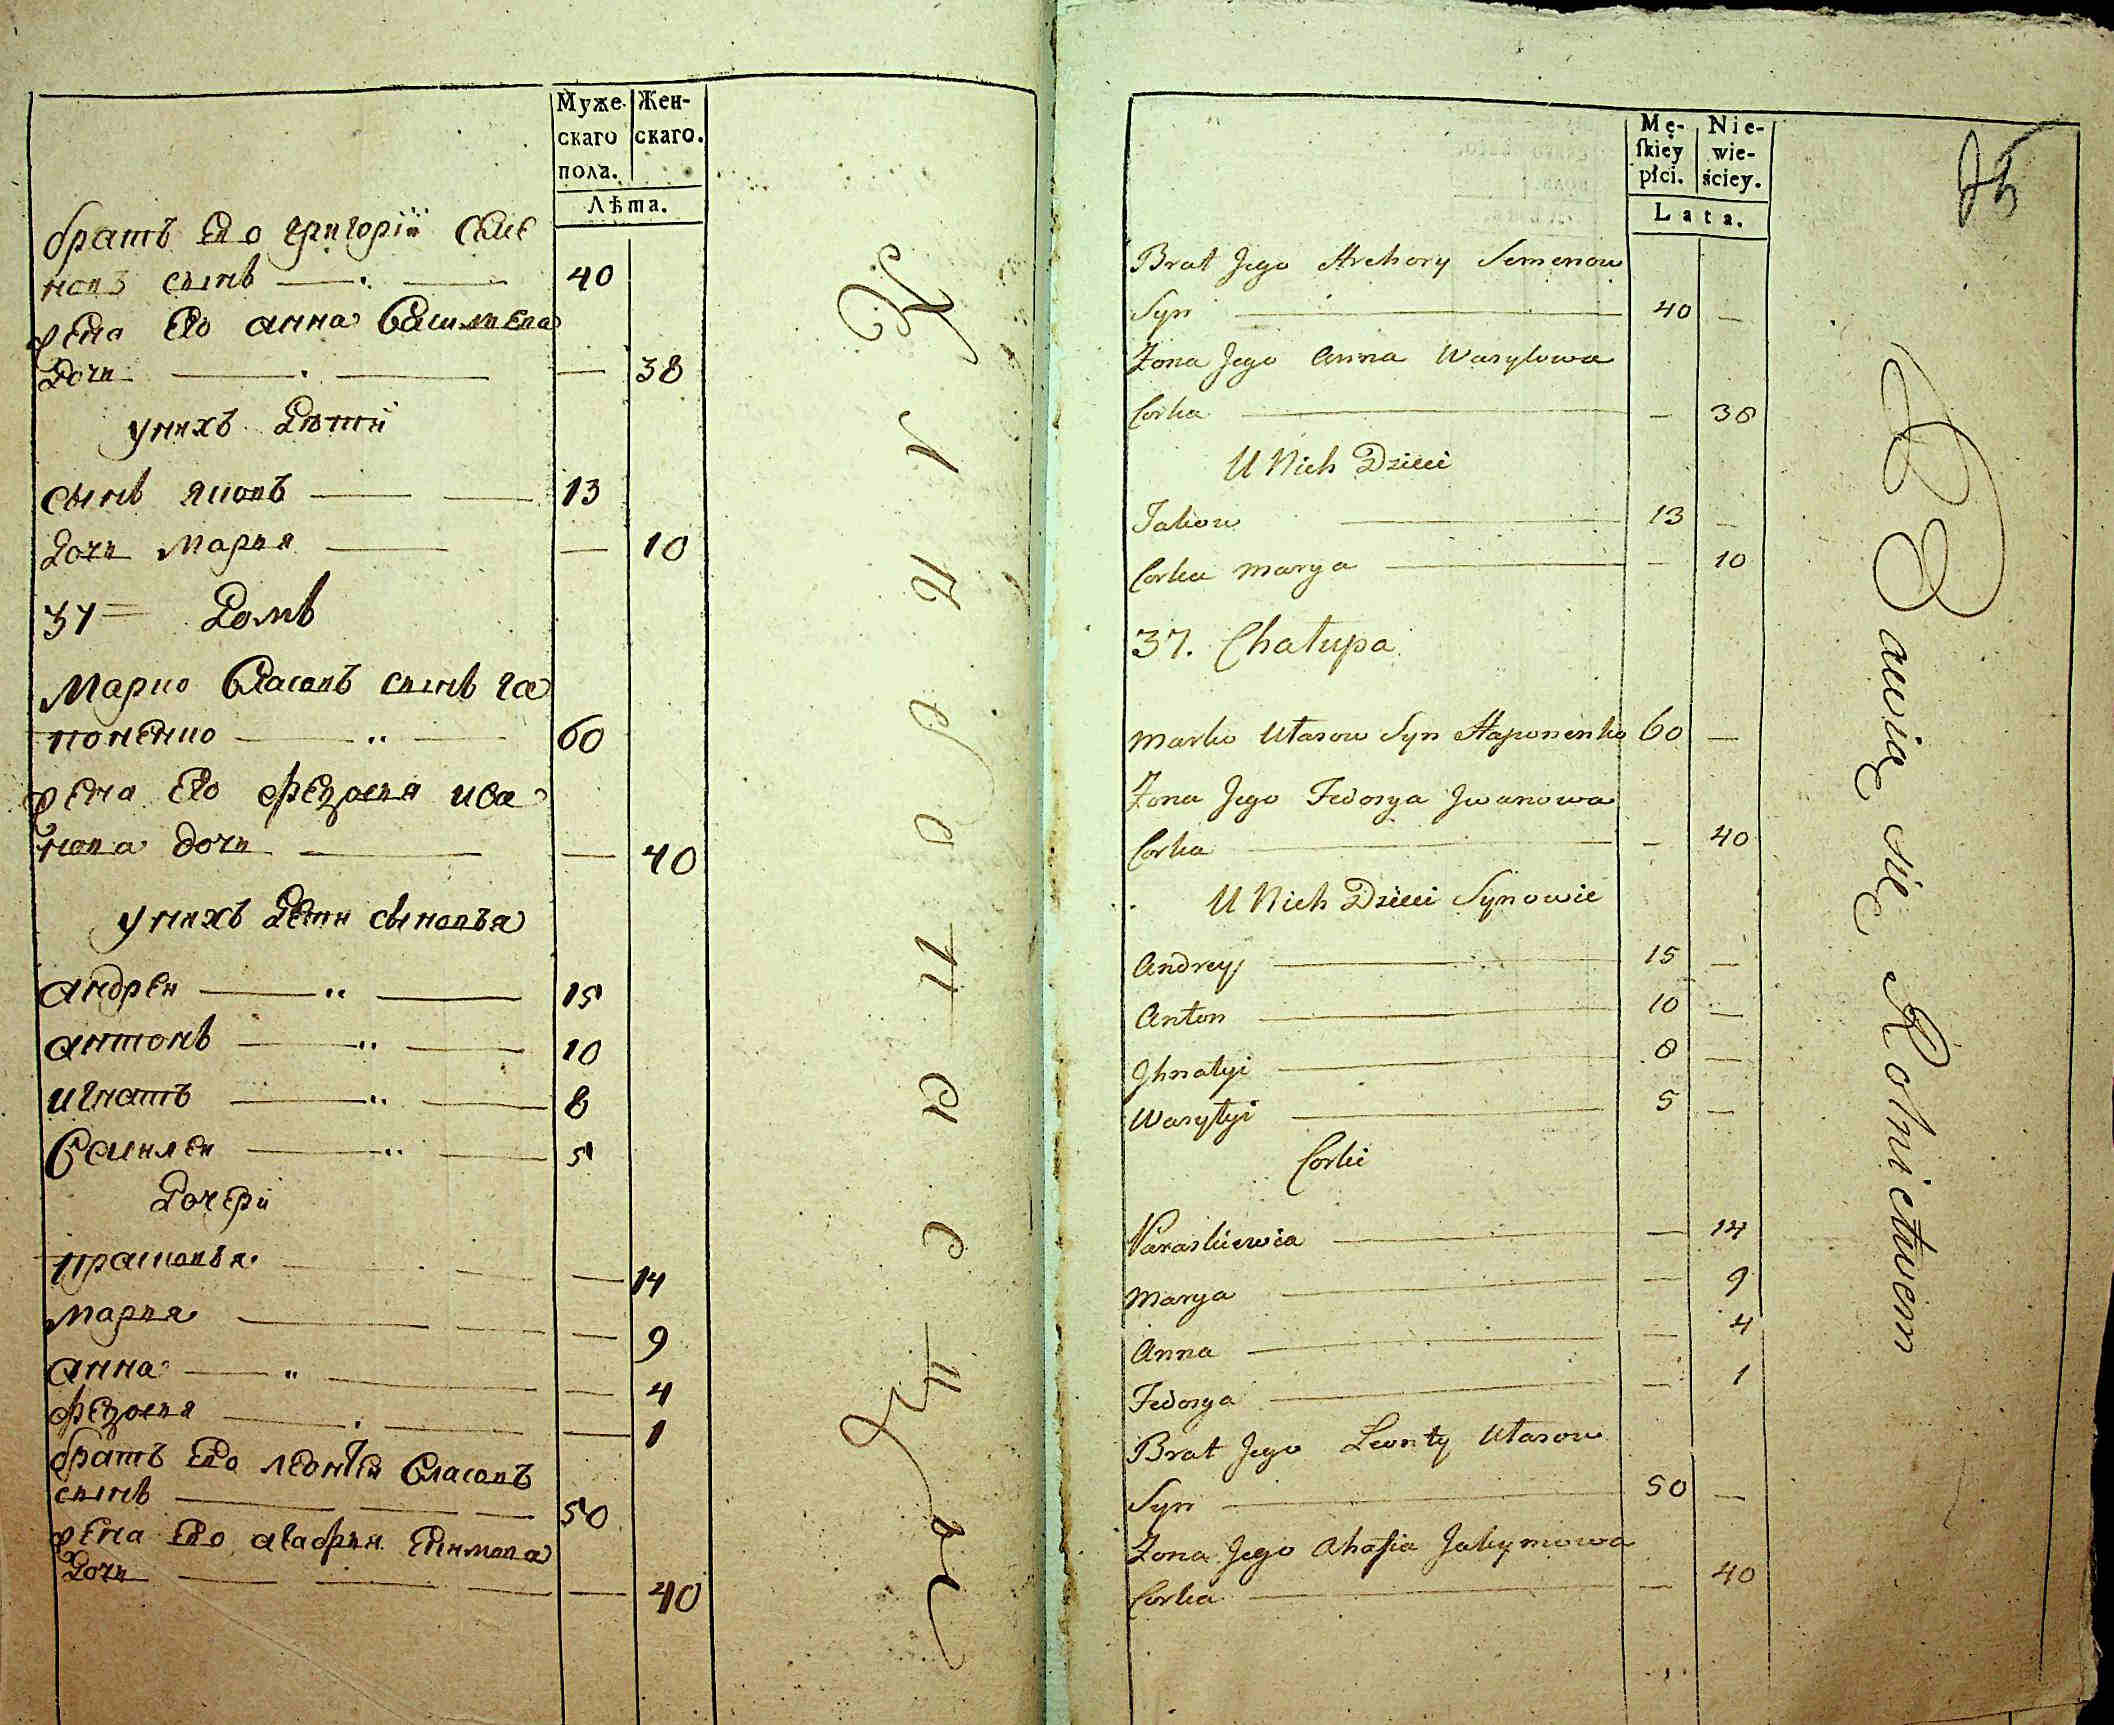 Муже- Жен-
скаго скаго.
пола.
Лѣта.
братъ Его григорiй Семе
новъ сынъ 40
жена Его анна Василиева
Дочь — 38
у нихъ Дѣтй
сынъ яковъ 13
Дочь Мария — 10
37 = Домъ
Марко Власовъ сынъ га
поненко 60
жена Его Федосия ива
нова дочь — 40
у нихъ Дети сыновья
андреи 15
антонъ 10
игнатъ 8
Василеи 5
Дочери
прасковья — 14
мария — 9
анна — 4
федосия — 1
братъ Его леонтiи Власовъ
сынъ 50
жена Его агафия Екимова
Дочь — 40
Mę- Nie-
skiey wie-
płci. ściey.
Lata.
Brat Jego Hrehory Semenow
Syn 40 —
Zona Jego Anna Wasylowa
Corka — 38
U Nich Dzieci
Jakow 13 —
Corka Marya — 10
37. Chałupa
Marko Ułasow Syn Haponenko 60 —
Zona Jego Fedosya Jwanowa
Corka — 40
U Nich Dzieci Synowie
Andrey 15 —
Anton 10 —
Jhnatyi 8 —
Wasylyi 5 —
Corki
Paraskiewia — 14
Marya — 9
Anna — 4
Fedosya — 1
Brat Jego Leonty Ułasow
Syn 50 —
Zona Jego Ahafia Jakymowa
Corka — 40
Bawią się Rolnictwem